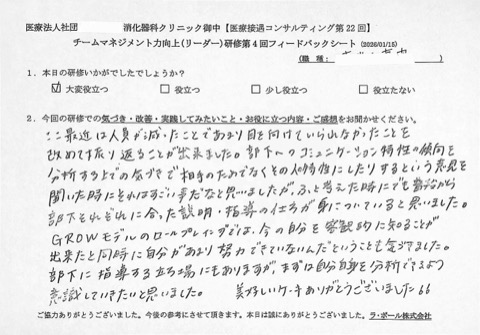 医療法人社団 消化器科クリニック御中【医療接遇コンサルティング第22回】
チームマネジメント力向上(リーダー)研修第4回フィードバックシート (2026/01/15)
(職 種:
1. 本日の研修いかがでしたでしょうか?
☑ 大変役立つ □ 役立つ □ 少し役立つ □ 役立たない
2. 今回の研修での気づき・改善・実践してみたいこと・お役に立つ内容・ご感想をお聞かせください。
ここ最近は人員が減ったことであまり目を向けていられなかったことを
改めて振り返ることが出来ました。部下へのコミュニケーション特性の傾向を
分析する上での気づきで相手のためでなくその人の特性にしたりするという意見を
聞いた時にそれはすごい事だなと思いましたが、ふと考えた時にでも普段から
部下それぞれに合った説明・指導の仕方が身についていると思いました。
GROWモデルのロールプレイングでは、今の自分を客観的に知ることが
出来たと同時に自分があまり努力できていないんだということも気づきました。
部下に指導する立場にもありますが、まずは自分自身を分析できるよう
意識していきたいと思いました。 美味しいケーキありがとうございました
ご協力ありがとうございました。今後の参考にさせて頂きます。本日は誠にありがとうございました。ラ・ポール株式会社